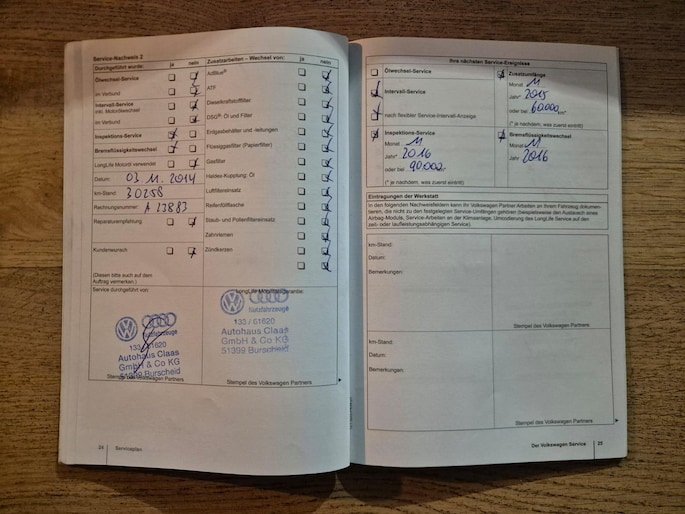 Service-Nachweis 2
Durchgeführt wurde: ja nein
Ölwechsel-Service
im Verbund
Intervall-Service
inkl. Motorölwechsel
im Verbund
Inspektions-Service
Bremsflüssigkeitswechsel
LongLife Motoröl verwendet
Datum: 03 11. 2014
km-Stand: 30258
Rechnungsnummer: A 23883
Reparaturempfehlung
Kundenwunsch
(Diesen bitte auch auf dem
Auftrag vermerken.)
Service durchgeführt von:
Nutzfahrzeuge
133 / 61620
Autohaus Claas
GmbH & Co KG
51399 Burscheid
Stempel des Volkswagen Partners
Zusatzarbeiten – Wechsel von: ja nein
AdBlue®
ATF
Dieselkraftstofffilter
DSG® Öl und Filter
Erdgasbehälter und -leitungen
Flüssiggasfilter (Papierfilter)
Gasfilter
Haldex-Kupplung: Öl
Luftfiltereinsatz
Reifenfüllflasche
Staub- und Pollenfiltereinsatz
Zahnriemen
Zündkerzen
LongLife Mobilitätsgarantie:
Nutzfahrzeuge
133 / 61620
Autohaus Claas
GmbH & Co KG
51399 Burscheid
Stempel des Volkswagen Partners
24 Serviceplan
Ihre nächsten Service-Ereignisse
Ölwechsel-Service
Intervall-Service
nach flexibler Service-Intervall-Anzeige
Zusatzumfänge
Monat 11
Jahr* 2015
oder bei 60.000 km*
(* je nachdem, was zuerst eintritt)
Inspektions-Service
Monat 11
Jahr* 2016
oder bei 90.000 km*
(* je nachdem, was zuerst eintritt)
Bremsflüssigkeitswechsel
Monat 11
Jahr 2016
Eintragungen der Werkstatt
In den folgenden Nachweisfeldern kann Ihr Volkswagen Partner Arbeiten an Ihrem Fahrzeug dokumen-
tieren, die nicht zu den festgelegten Service-Umfängen gehören (beispielsweise den Austausch eines
Airbag-Moduls, Service-Arbeiten an der Klimaanlage, Umstellung des LongLife Service auf den
zeit- oder laufleistungsabhängigen Service)
km-Stand:
Datum:
Bemerkungen:
Stempel des Volkswagen Partners
km-Stand:
Datum:
Bemerkungen:
Stempel des Volkswagen Partners
Der Volkswagen Service 25